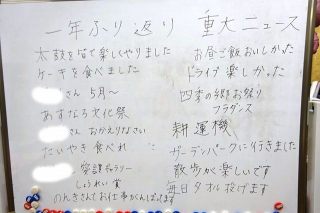 一年ふり返り 重大ニュース
太鼓を皆で楽しくやりました
ケーキを食べました
さん 5月〜
あすなろ文化祭
さん おかえりなさい
たいやき食べれ
ラリー
しょうれい賞
のんきさんでお仕事がんばってます
お昼ご飯おいしかった
ドライブ楽しかった
四季の郷お祭り
フラダンス
耕運機
ガーデンパークに行きました
散歩が楽しいです
毎日タオル投げます